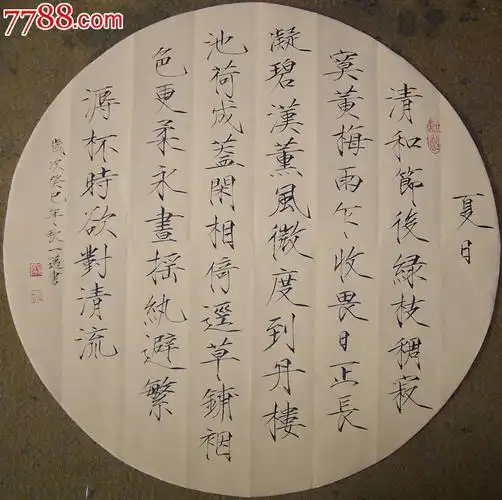 7788.com
夏日
清和節後綠枝稠寂
寞黃梅雨乍收畏日正長
凝碧漢薰風微度到丹樓
池荷成蓋閑相倚逕草鋪裀
色更柔永晝搖紈避繁
溽杯時欲對清流
歲次癸巳年秋一書